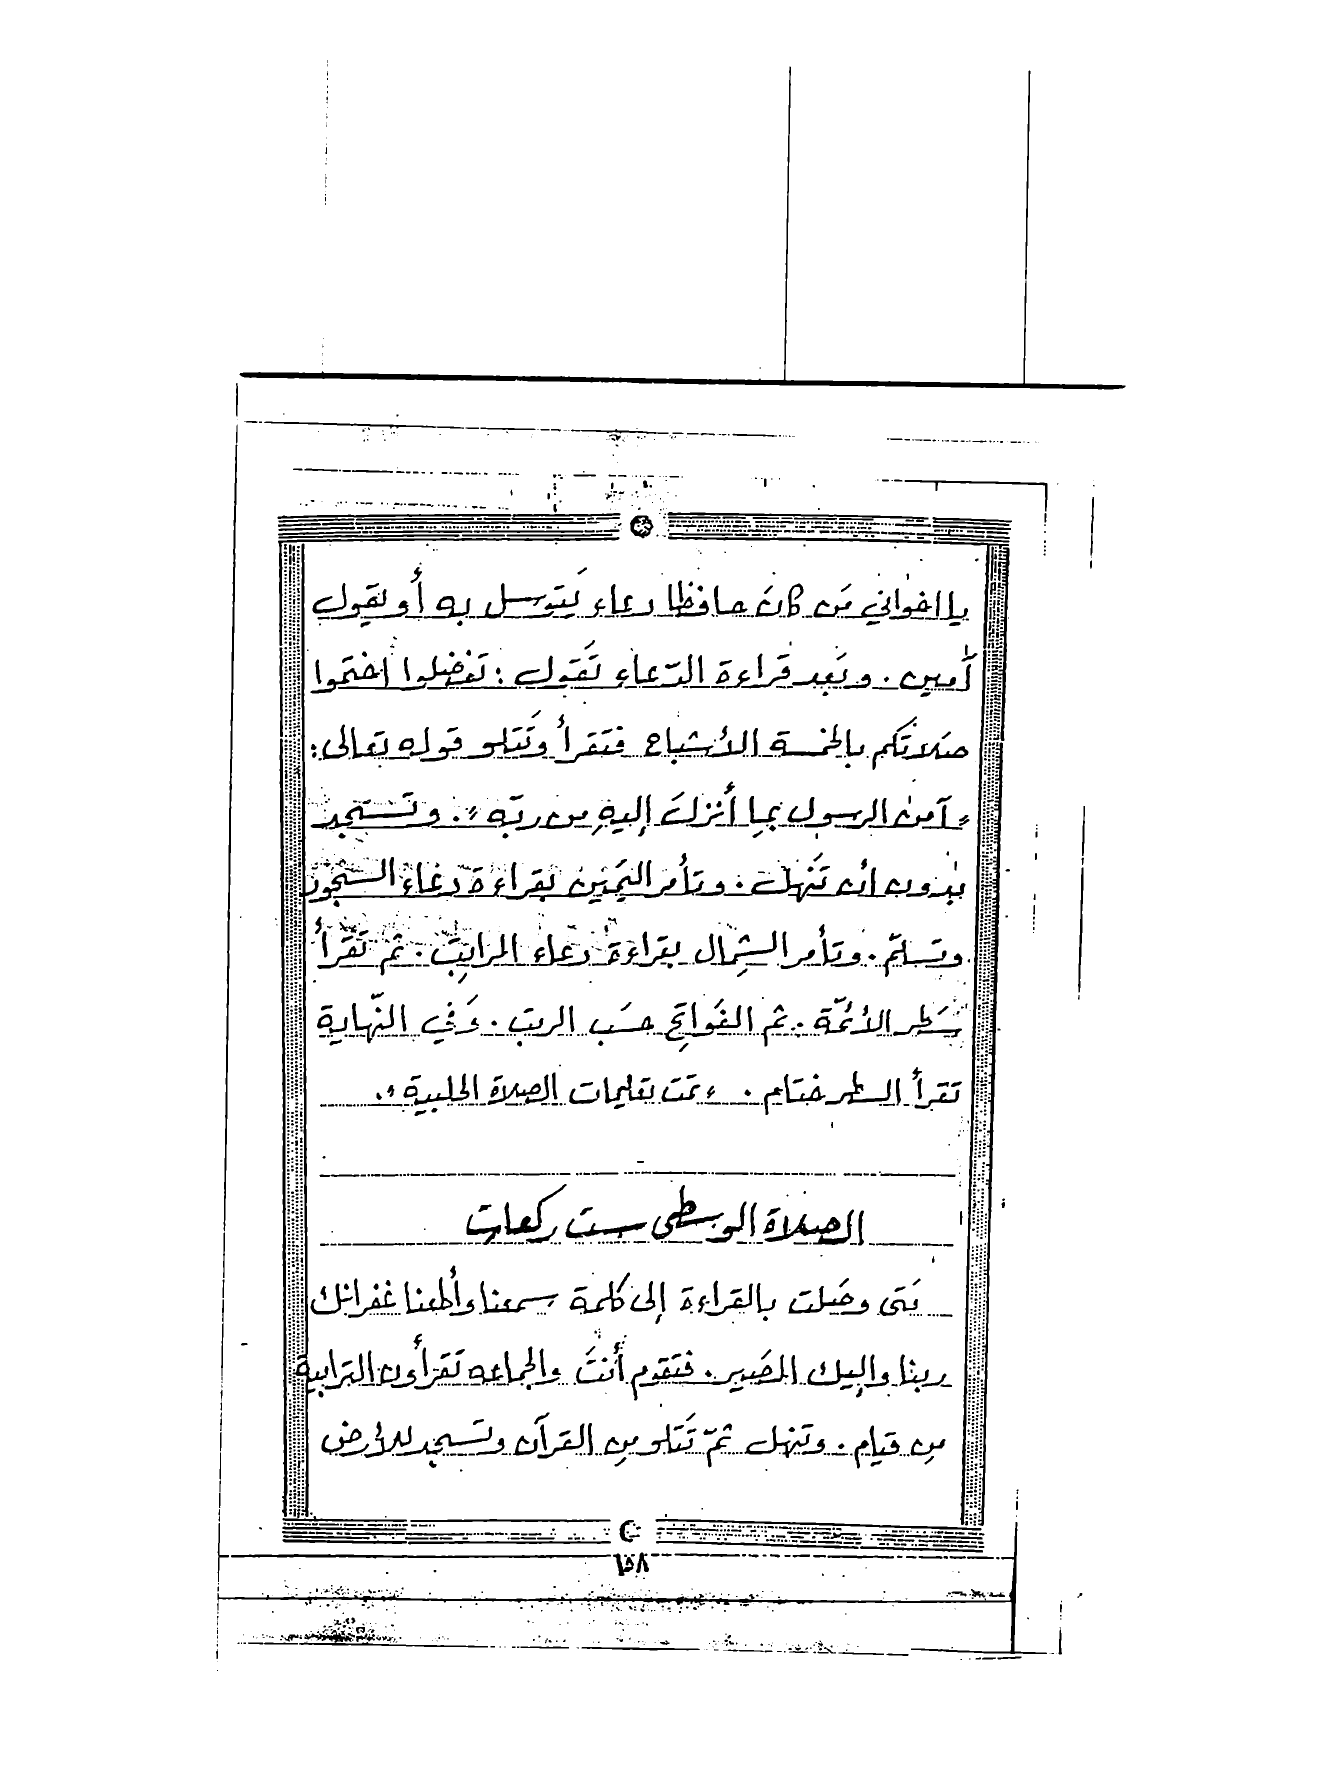 يا اخواني مَن كانَ حافظا دعاء يَتوسل به أو يقول
آمين . وبَعد قراءة الدّعاء تَقول : تفضلوا اختموا
صَلاتَكم بالخمسة الأشباح فتقرأ وتَتلو قوله تعالى :
« آمن الرسول بما أُنزلَ إليهِ من ربّه » . وتَسجد
بدون ان تَنهل . وتأمر اليَمين بقراءة دعاء السجود
وتسلمّ . وتأمر الشِمال بقراءة دعاء المراتِب . ثم تَقرأ
سَطر الأئمّة . ثم الفَواتِح حسَب الرتب . وَفي النّهاية
تقرأ السطر ختام . « تمَت تعليمات الصلاة الحلبية » .
الصلاة الوسطى ست ركعات
مَتى وصَلت بالقراءة إلى كلمة سمعنا وأطعنا غفرانك
ربنا واليك المصَير . فتقوم أنتَ والجماعه تَقرأون الترابية
مِن قيام . وتنهل ثمّ تَتلو مِن القرآن وتَسجد للأرض
١٥٨